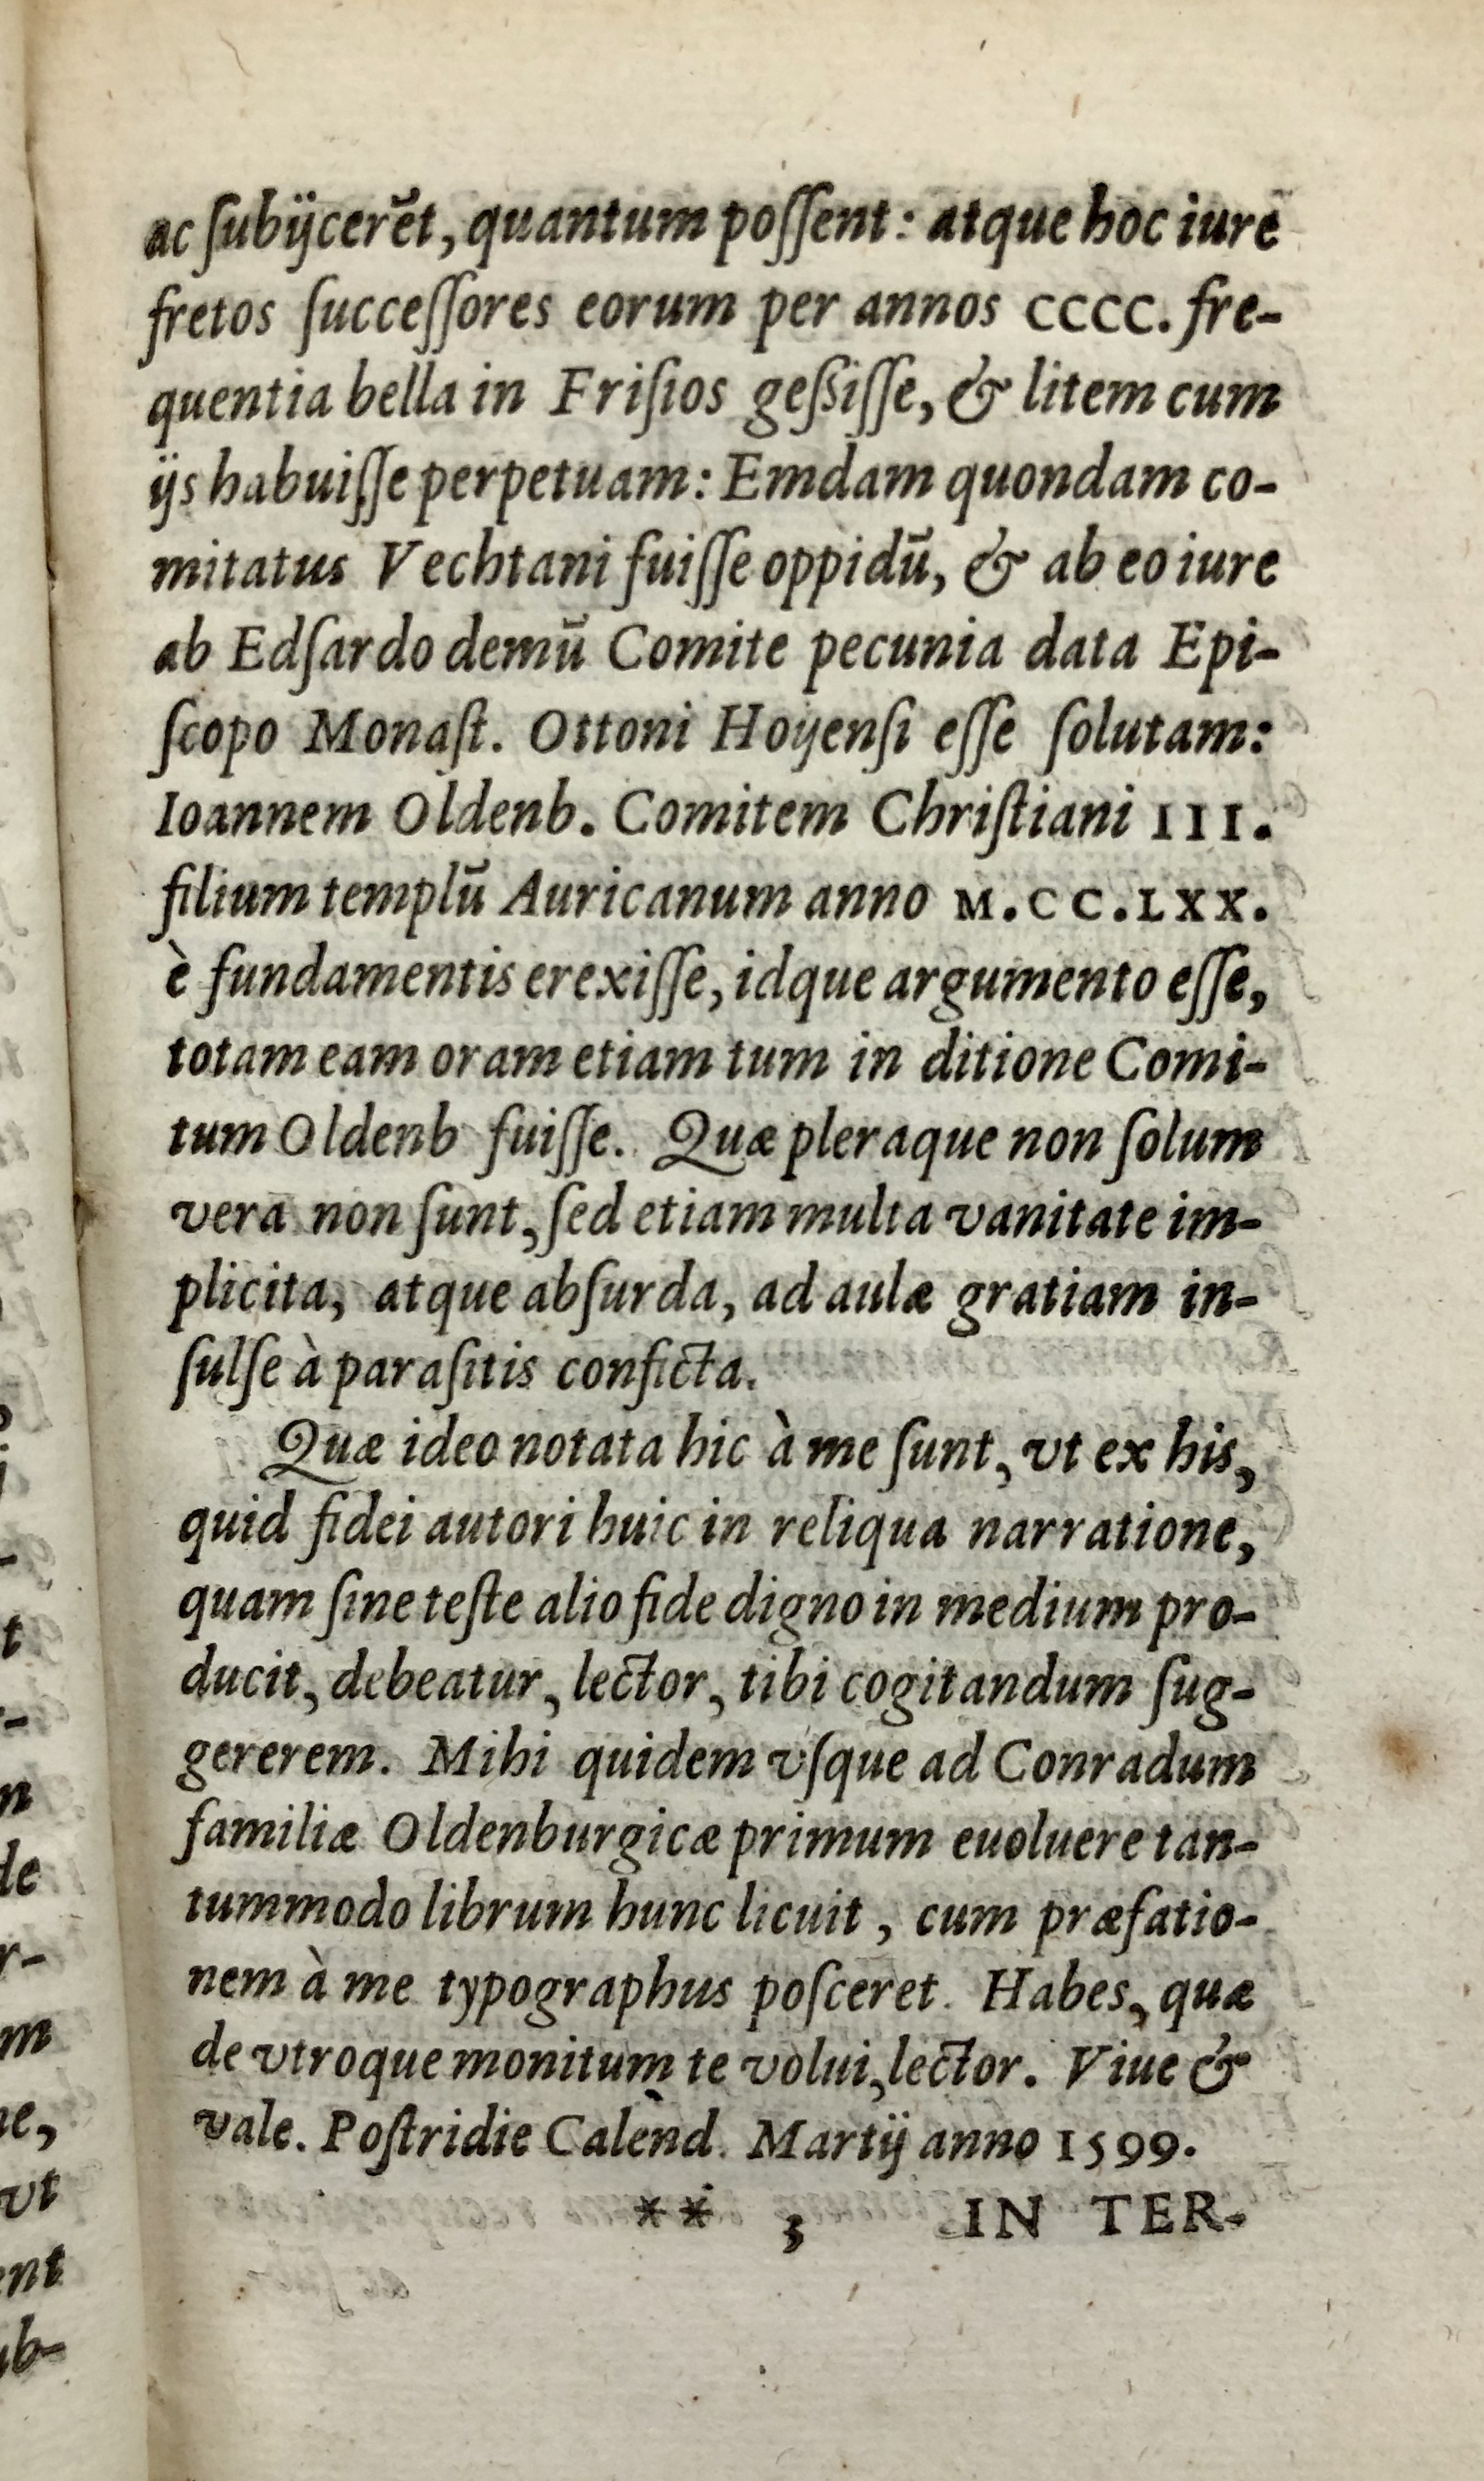 ac ſubijcerēt, quantum poſſent: atque hoc iure
fretos ſucceſſores eorum per annos CCCC. fre-
quentia bella in Friſios geßiſſe, & litem cum
ijs habuiſſe perpetuam: Emdam quondam co-
mitatus Vechtani fuiſſe oppidū, & ab eo iure
ab Edſardo demū Comite pecunia data Epi-
ſcopo Monaſt. Ottoni Hoyenſi eſſe ſolutam:
Ioannem Oldenb. Comitem Chriſtiani III.
filium templū Auricanum anno M.CC.LXX.
è fundamentis erexiſſe, idque argumento eſſe,
totam eam oram etiam tum in ditione Comi-
tum Oldenb fuiſſe. Quæ pleraque non ſolum
vera non ſunt, ſed etiam multa vanitate im-
plicita, atque abſurda, ad aulæ gratiam in-
ſulſe à paraſitis conficta.
Quæ ideo notata hic à me ſunt, vt ex his,
quid fidei autori huic in reliqua narratione,
quam ſine teſte alio fide digno in medium pro-
ducit, debeatur, lector, tibi cogitandum ſug-
gererem. Mihi quidem vſque ad Conradum
familiæ Oldenburgicæ primum euoluere tan-
tummodo librum hunc licuit, cum præfatio-
nem à me typographus poſceret. Habes, quæ
de vtroque monitum te volui, lector. Viue &
vale. Poſtridie Calend. Martij anno 1599.
** 3 IN TER-